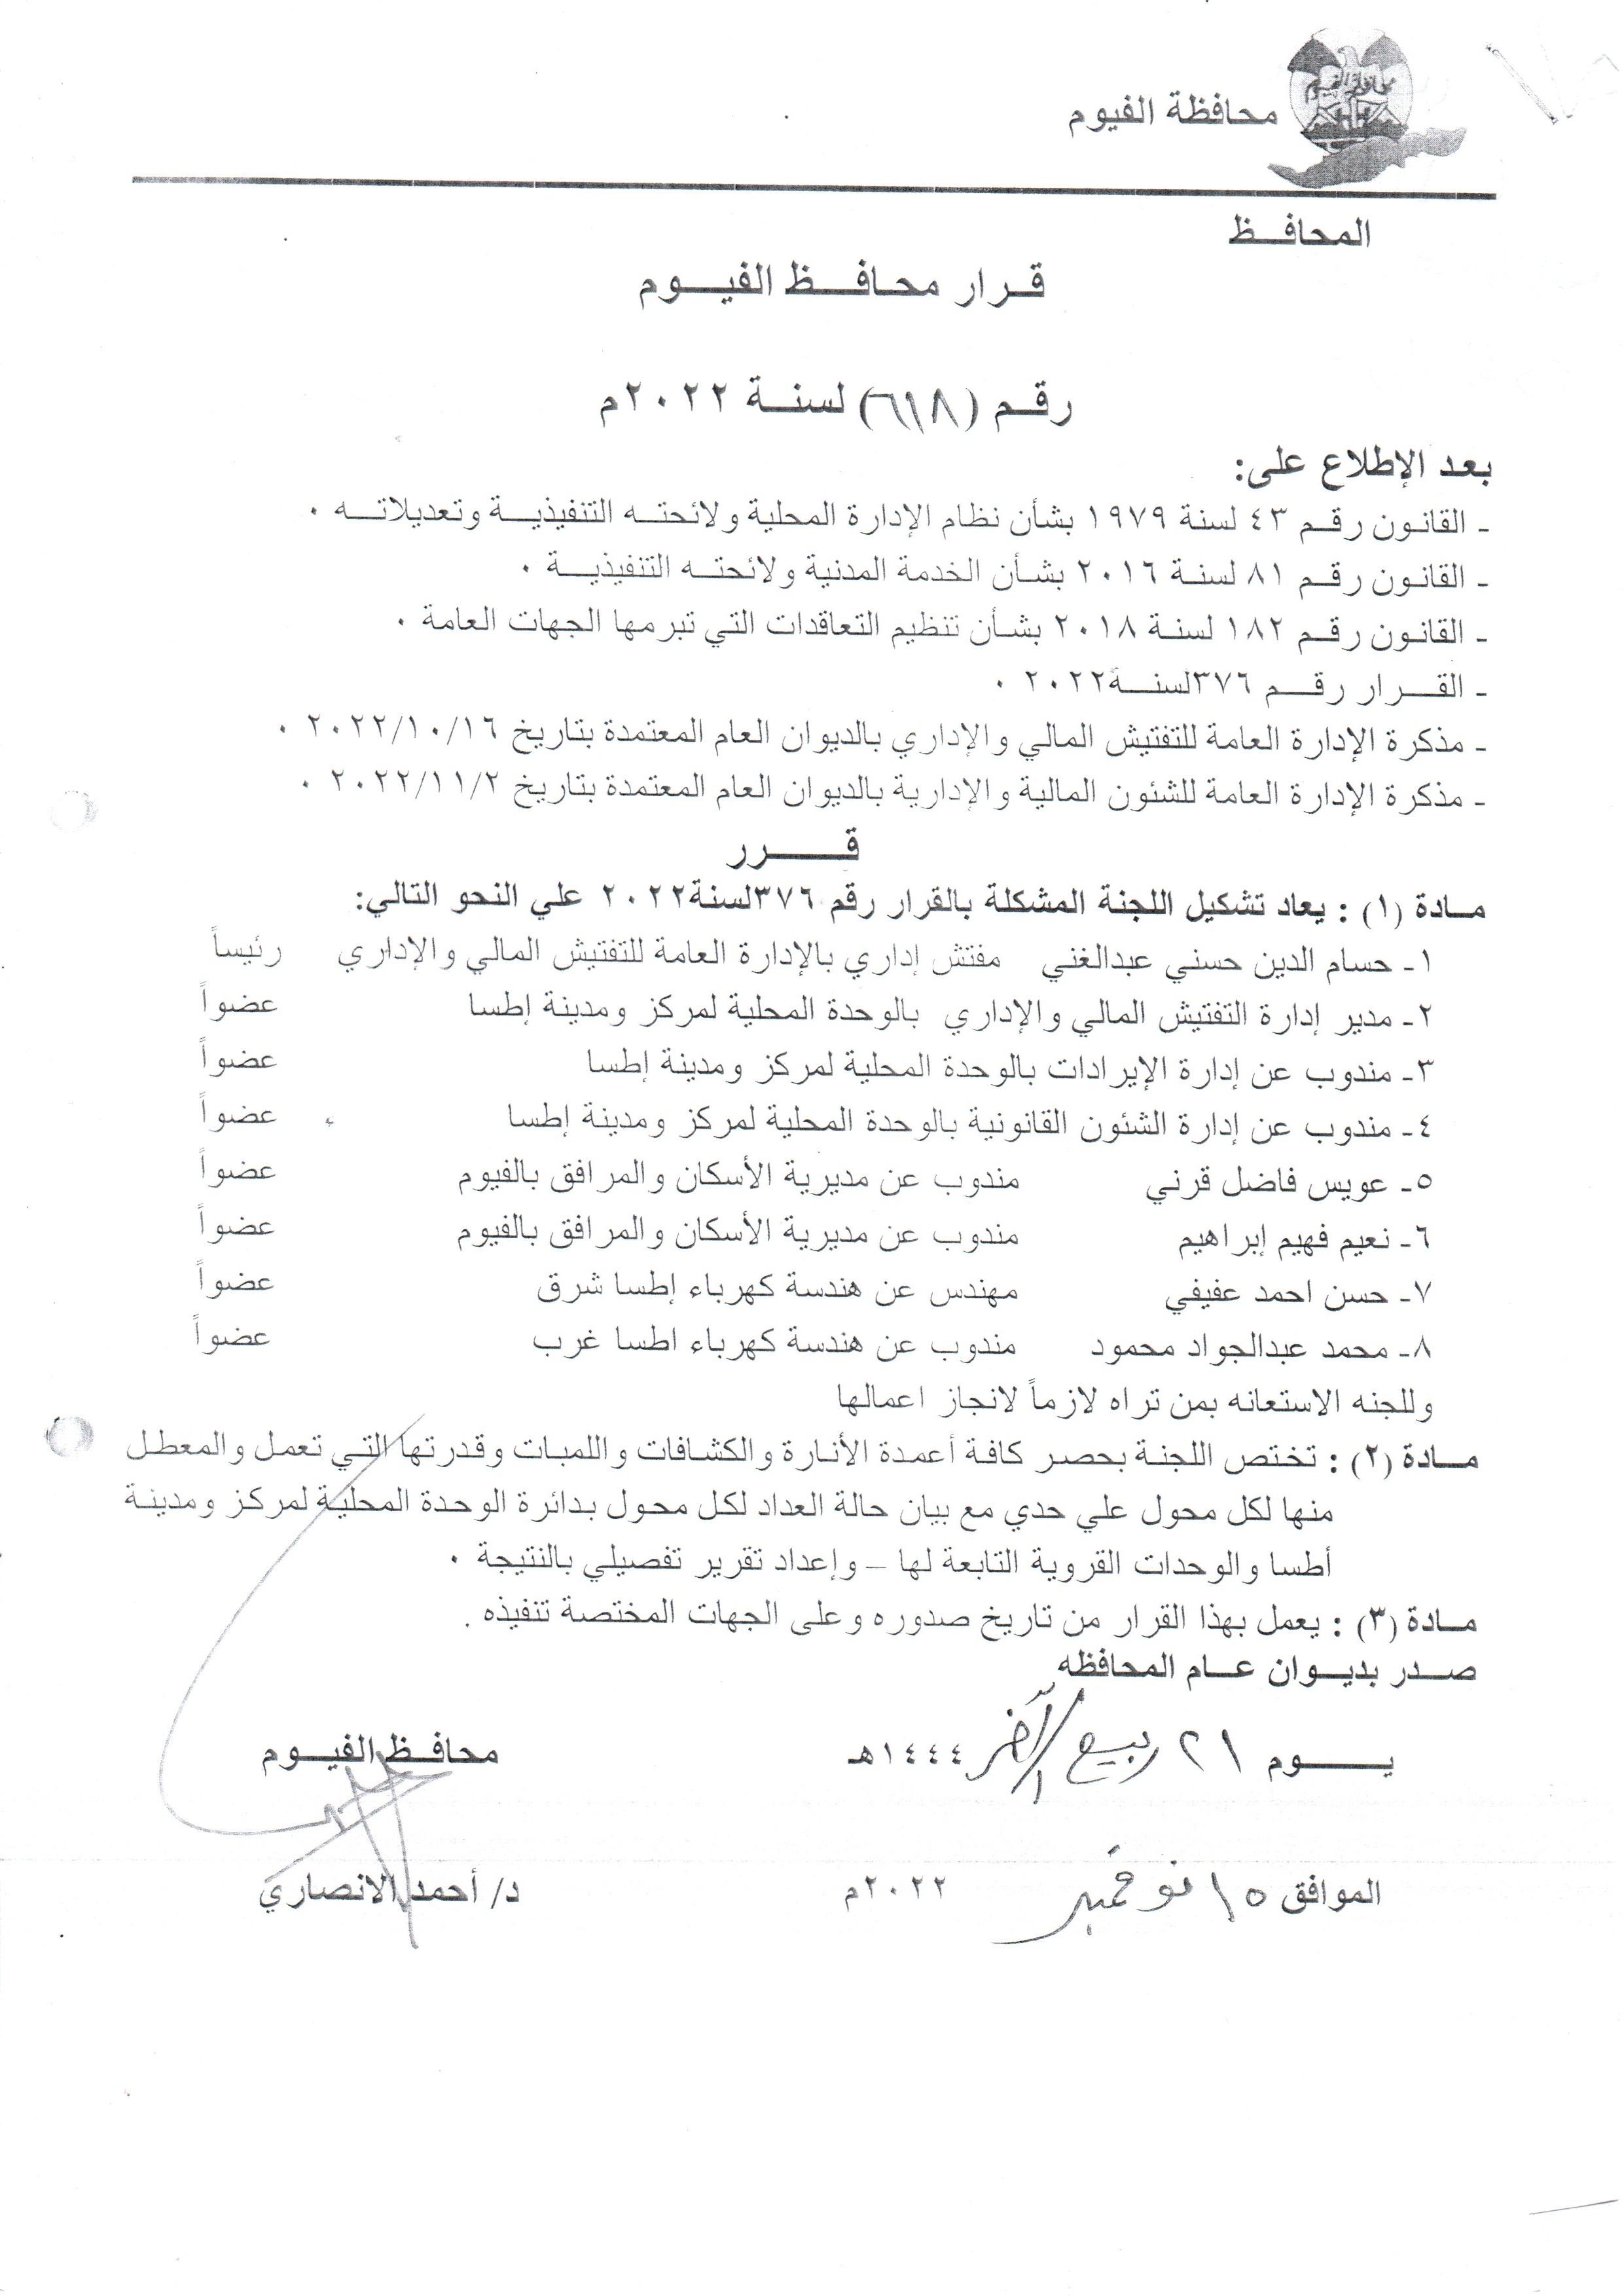 محافظة الفيوم
محافظة الفيوم
المحافـــظ
قـرار محـافـــظ الفيـــوم
رقـم (٦١٨) لسنـة ٢٠٢٢م
بعد الإطلاع على:
ـ القانون رقـم ٤٣ لسنة ١٩٧٩ بشأن نظام الإدارة المحلية ولائحتـه التنفيذيــة وتعديلاتــه .
ـ القانون رقـم ٨١ لسنة ٢٠١٦ بشأن الخدمة المدنية ولائحتـه التنفيذيــة .
ـ القانون رقـم ١٨٢ لسنة ٢٠١٨ بشأن تنظيم التعاقدات التي تبرمها الجهات العامة .
ـ القــرار رقــم ٣٧٦لسنــة٢٠٢٢ .
ـ مذكرة الإدارة العامة للتفتيش المالي والإداري بالديوان العام المعتمدة بتاريخ ٢٠٢٢/١٠/١٦ .
ـ مذكرة الإدارة العامة للشئون المالية والإدارية بالديوان العام المعتمدة بتاريخ ٢٠٢٢/١١/٢ .
قــــرر
مـادة (١) : يعاد تشكيل اللجنة المشكلة بالقرار رقم ٣٧٦لسنة٢٠٢٢ علي النحو التالي:
١ـ حسام الدين حسني عبدالغني مفتش إداري بالإدارة العامة للتفتيش المالي والإداري رئيساً
٢ـ مدير إدارة التفتيش المالي والإداري بالوحدة المحلية لمركز ومدينة إطسا عضواً
٣ـ مندوب عن إدارة الإيرادات بالوحدة المحلية لمركز ومدينة إطسا عضواً
٤ـ مندوب عن إدارة الشئون القانونية بالوحدة المحلية لمركز ومدينة إطسا عضواً
٥ـ عويس فاضل قرني مندوب عن مديرية الأسكان والمرافق بالفيوم عضواً
٦ـ نعيم فهيم إبراهيم مندوب عن مديرية الأسكان والمرافق بالفيوم عضواً
٧ـ حسن احمد عفيفي مهندس عن هندسة كهرباء إطسا شرق عضواً
٨ـ محمد عبدالجواد محمود مندوب عن هندسة كهرباء اطسا غرب عضواً
وللجنه الاستعانه بمن تراه لازماً لانجاز اعمالها
مـادة (٢) : تختص اللجنة بحصر كافة أعمدة الأنارة والكشافات واللمبات وقدرتها التي تعمل والمعطل
منها لكل محول علي حدي مع بيان حالة العداد لكل محول بدائرة الوحدة المحلية لمركز ومدينة
أطسا والوحدات القروية التابعة لها – وإعداد تقرير تفصيلي بالنتيجة .
مـادة (٣) : يعمل بهذا القرار من تاريخ صدوره وعلى الجهات المختصة تنفيذه .
صـدر بديـوان عـام المحافظه
يـــــوم ٢١ ربيع الآخر ١٤٤٤هـ
محافـظ الفيـــوم
الموافق ١٥ نوفمبر ٢٠٢٢م
د/ أحمد الانصاري